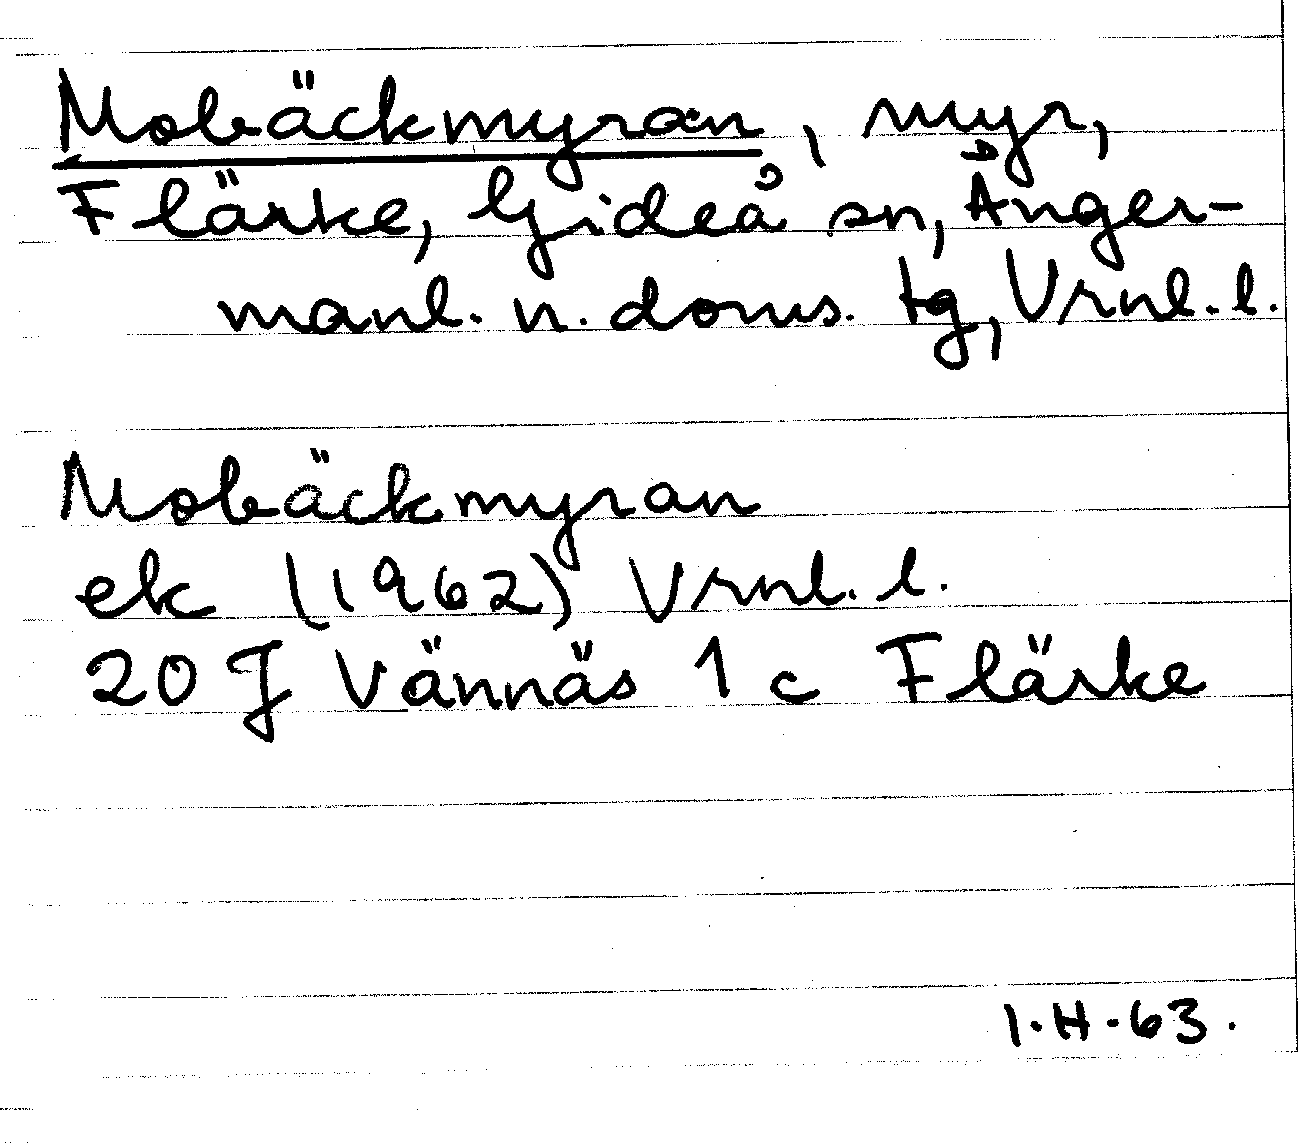 Mobäckmyran, myr,
Flärke, Gideå sn, Ånger-
manl. n. doms. tg, Vrnl. l.
Mobäckmyran
ek (1962) Vrnl. l.
20 J Vännäs 1 c Flärke
I.H.63.